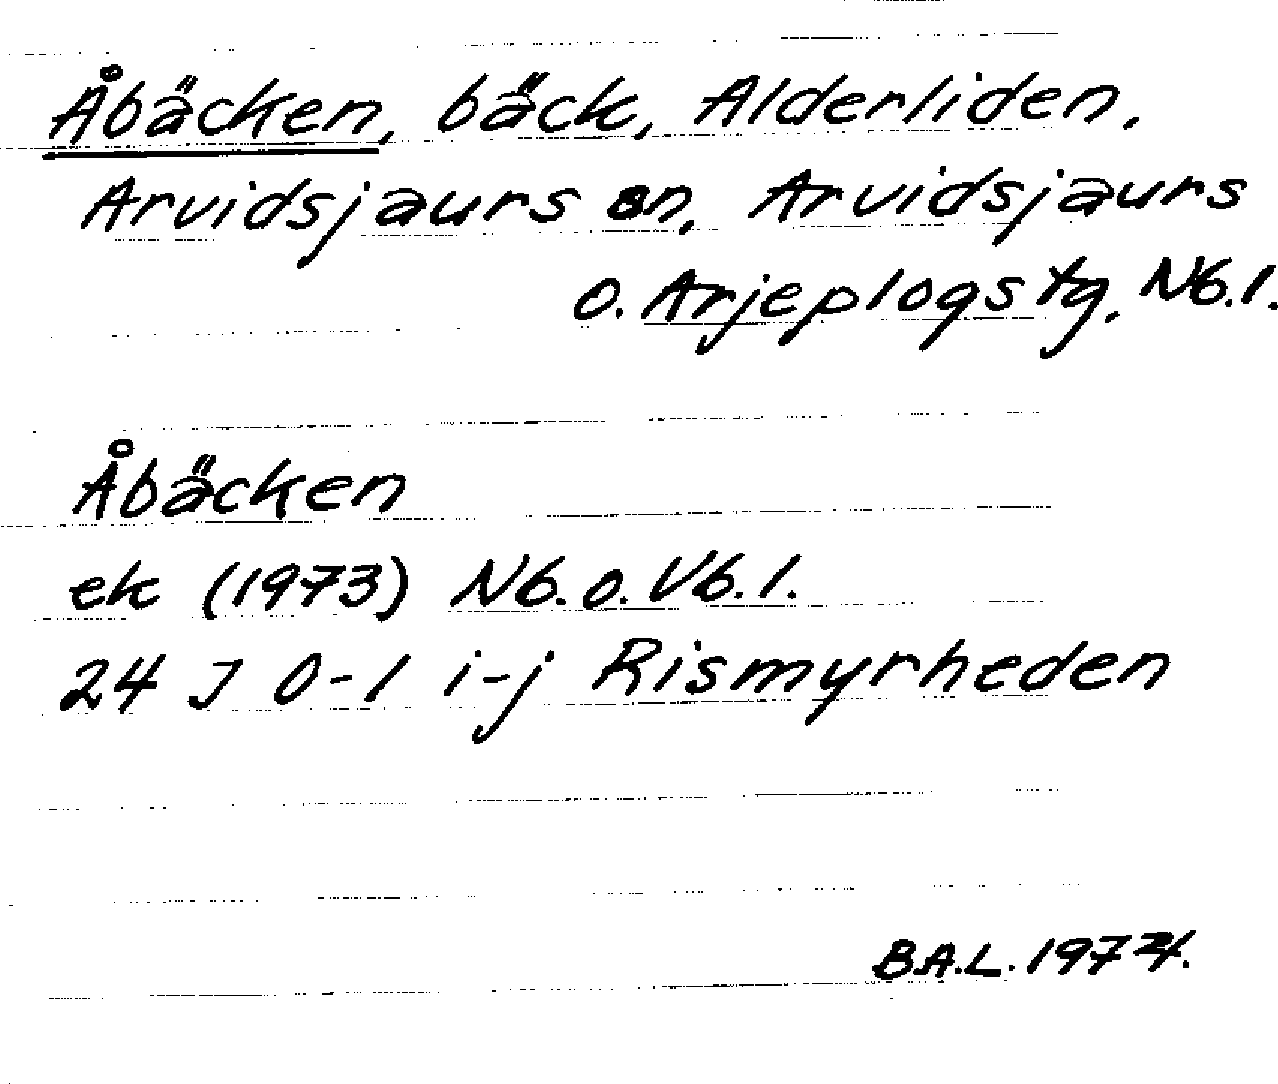 Åbäcken, bäck, Alderliden,
Arvidsjaurs sn, Arvidsjaurs
o. Arjeplogs tg, Nb.l.
Åbäcken
ek (1973) Nb. o. Vb.l.
24 J 0-1 i-j Rismyrheden
B.A.L. 1974.